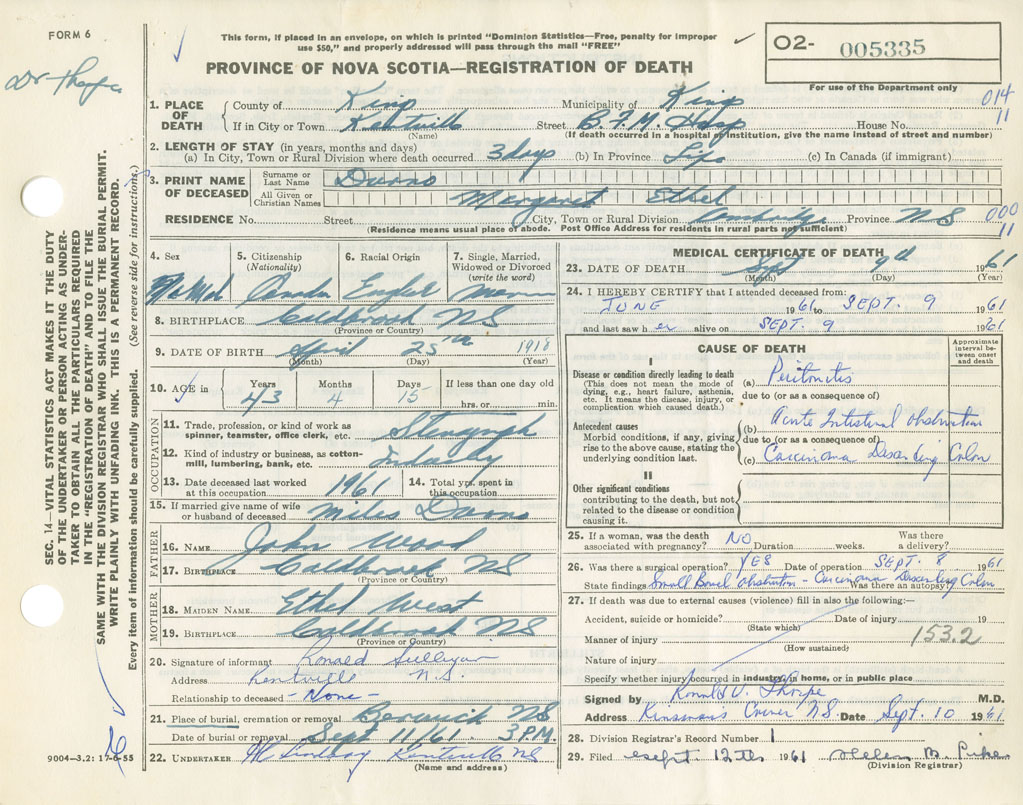 FORM 6
This form, if placed in an envelope, on which is printed "Dominion Statistics—Free, penalty for improper
use $50," and properly addressed will pass through the mail "FREE"
O2- 005335
PROVINCE OF NOVA SCOTIA—REGISTRATION OF DEATH
For use of the Department only
014
11
1. PLACE OF DEATH { County of King Municipality of King
If in City or Town Kentville Street B.F.M. Hosp House No.
(Name) (If death occurred in a hospital or institution, give the name instead of street and number)
2. LENGTH OF STAY (in years, months and days)
(a) In City, Town or Rural Division where death occurred 3 days (b) In Province Life (c) In Canada (if immigrant)
3. PRINT NAME OF DECEASED { Surname or Last Name
All Given or Christian Names Margaret Ethel
RESIDENCE No. Street City, Town or Rural Division Cambridge Province N.S
(Residence means usual place of abode. Post Office Address for residents in rural parts not sufficient)
000
11
4. Sex
5. Citizenship (Nationality)
6. Racial Origin
7. Single, Married, Widowed or Divorced (write the word)
8. BIRTHPLACE Coldbrook N.S
(Province or Country)
9. DATE OF BIRTH April 25th 1918
(Month) (Day) (Year)
10. AGE in Years 43 Months 4 Days 15 If less than one day old hrs. or min.
OCCUPATION
11. Trade, profession, or kind of work as spinner, teamster, office clerk, etc.
12. Kind of industry or business, as cotton-mill, lumbering, bank, etc.
13. Date deceased last worked at this occupation 1961 14. Total yrs. spent in this occupation
15. If married give name of wife or husband of deceased Miles
FATHER
16. NAME John Wood
17. BIRTHPLACE Coldbrook N.S
(Province or Country)
MOTHER
18. MAIDEN NAME Ethel West
19. BIRTHPLACE Coldbrook N.S
(Province or Country)
20. Signature of informant Ronald Sullivan
Address Kentville N.S.
Relationship to deceased - None -
21. Place of burial, cremation or removal Berwick NS
Date of burial or removal Sept 11/61 3 P.M.
22. UNDERTAKER W Lindsay Kentville NS
(Name and address)
MEDICAL CERTIFICATE OF DEATH
23. DATE OF DEATH Sept 9th 1961
(Month) (Day) (Year)
24. I HEREBY CERTIFY that I attended deceased from:
JUNE 1961 to SEPT. 9 1961
and last saw her alive on SEPT. 9 1961
CAUSE OF DEATH
Approximate interval between onset and death
I
Disease or condition directly leading to death
(This does not mean the mode of dying, e.g., heart failure, asthenia, etc. It means the disease, injury, or complication which caused death.)
(a) Peritonitis
due to (or as a consequence of)
Antecedent causes
Morbid conditions, if any, giving rise to the above cause, stating the underlying condition last.
(b) Acute Intestinal Obstruction
due to (or as a consequence of)
(c) Carcinoma Descending Colon
II
Other significant conditions
contributing to the death, but not related to the disease or condition causing it.
25. If a woman, was the death associated with pregnancy? NO Duration weeks. Was there a delivery?
26. Was there a surgical operation? YES Date of operation SEPT. 8 1961
State findings Small Bowel Obstruction - Carcinoma Descending Colon Was there an autopsy?
27. If death was due to external causes (violence) fill in also the following:—
Accident, suicide or homicide? Date of injury 19
(State which)
Manner of injury 153.2
(How sustained)
Nature of injury
Specify whether injury occurred in industry, in home, or in public place
Signed by Ronald V. Thorpe M.D.
Address Kinsman's Corner N.S. Date Sept. 10 1961
28. Division Registrar's Record Number 1
29. Filed Sept. 12th 1961 Helen M.
(Division Registrar)
SEC. 14—VITAL STATISTICS ACT MAKES IT THE DUTY
OF THE UNDERTAKER OR PERSON ACTING AS UNDER-
TAKER TO OBTAIN ALL THE PARTICULARS REQUIRED
IN THE "REGISTRATION OF DEATH" AND TO FILE THE
SAME WITH THE DIVISION REGISTRAR WHO SHALL ISSUE THE BURIAL PERMIT.
WRITE PLAINLY WITH UNFADING INK. THIS IS A PERMANENT RECORD.
Every item of information should be carefully supplied. (See reverse side for instructions.)
9004—3.2: 17-6-55